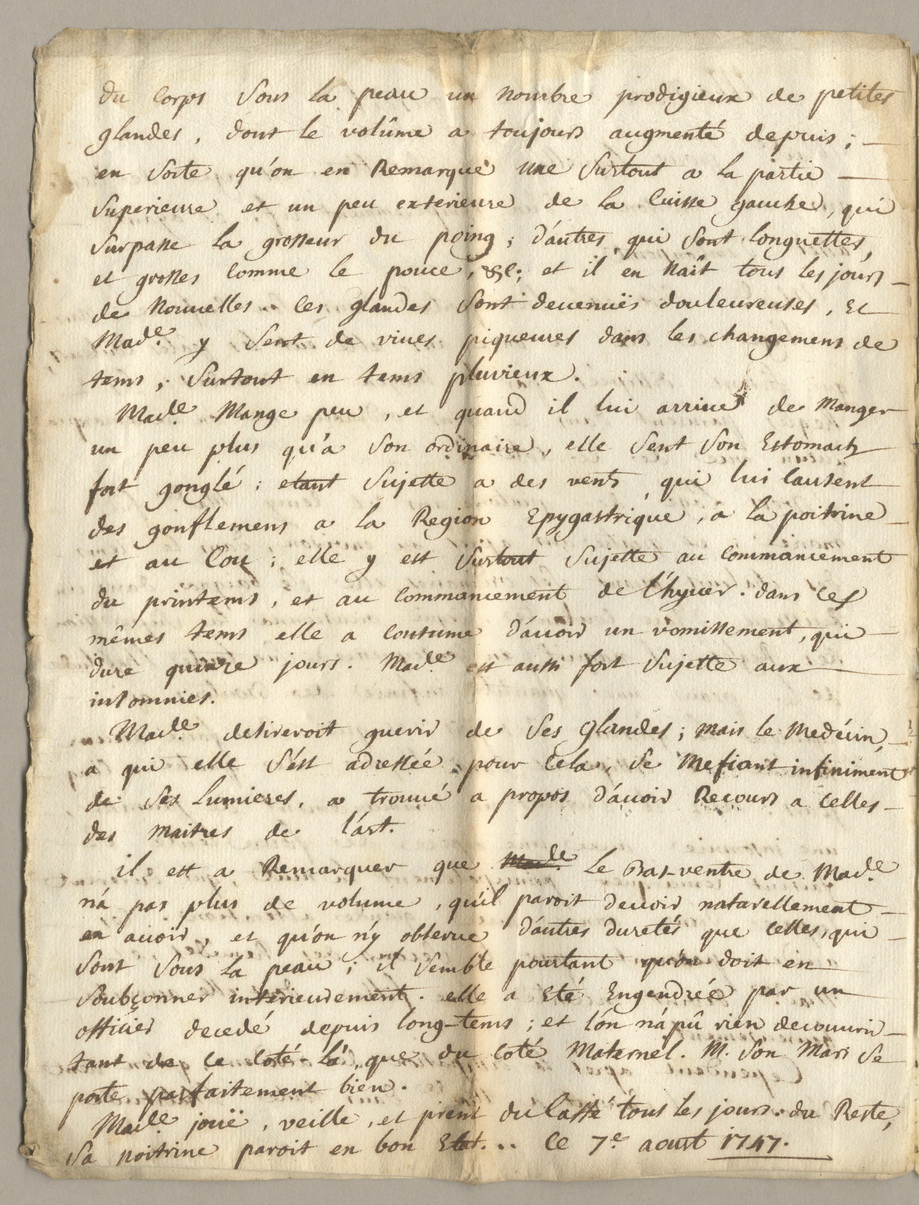 du Corps sous la peau un nombre prodigieux de petites
glandes, dont le volûme a toujours augmenté depuis ;
en sorte qu'on en Remarque une surtout a la partie
superieure et un peu exterieure de la Cuisse gauche, qui
surpasse la grosseur du poing ; d'autres qui sont longuettes,
et grosses Comme le pouce, &c; et il en naît tous les jours
de nouvelles.. Ces glandes sont devenuës douleureuses, et
Made. y sent de vives piqueures dans les changemens de
tems, surtout en tems pluvieux.
Made. Mange peu, et quand il lui arrive de Manger
un peu plus qu'a son ordinaire, elle sent son Estomach
fort gonglé ; etant sujette a des vents, qui lui Causent
des gonflemens a la Region Epygastrique, a la poitrine
et au Cou ; elle y est surtout sujette au Commancement
du printems, et au Commancement de l'hyver. dans Ces
mêmes tems elle a Coutume d'avoir un vomissement, qui
dure quinze jours. Made. est aussi fort sujette aux
insomnies.
Made. desireroit guerir de ses glandes ; mais le Medécin,
a qui elle s'est adressée pour Cela, se Mefiant infiniment
de ses Lumieres, a trouvé a propos d'avoir Recours a Celles
des maitres de l'art.
il est a Remarquer que Made. Le Bas-ventre de Made.
n'a pas plus de volume, qu'il paroit devoir naturellement
en avoir, et qu'on n'y observe d'autres duretés que Celles, qui
sont sous la peau ; il semble pourtant qu'on doit en
soubçonner intérieurement. elle a Eté Engendrée par un
officier decedé depuis long-tems ; et l'on n'a pû rien decouvrir
tant de Ce Coté-là, que du Coté Maternel. M. son Mari se
porte parfaitement bien.
Made. jouë, veille, et prent du Caffé tous les jours. du Reste,
sa poitrine paroit en bon Etat... Ce 7e. aoust 1747.